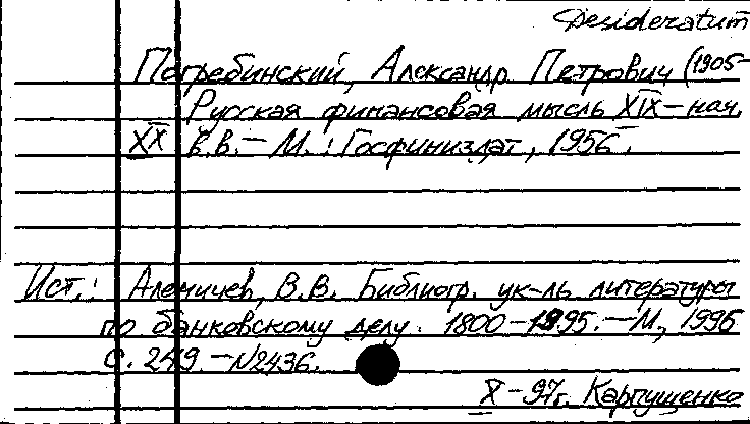 Desideratum
Погребинский, Александр Петрович (1905-
Русская финансовая мысль XIX – нач.
XX в.в. – М. : Госфиниздат, 1956.
Ист.: Аленичев, В.В. Библиогр. ук-ль литературы
по банковскому делу. 1800-1995. – М., 1996
С. 249. – №2436.
X – 97г. Карпущенко